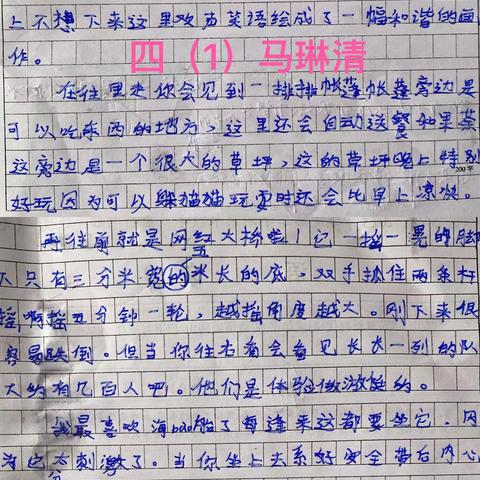 上不想下来这里欢声笑语绘成了一幅和谐的画
作。
四（1）马琳清
在往里走你会见到一排排帐蓬帐蓬旁边是
可以吃东西的地方，这里还会自动送餐如果菜
这旁边是一个很大的草坪，这的草坪晚上特别
200字
好玩因为可以躲猫猫玩耍时还会比早上凉快。
再往前就是网红大桥啦！它一摇一晃的脚
下只有三分米宽的五米长的底，双手抓住两条杆
摇啊摇五分钟一轮，越摇角度越大。刚下来很
容易跌倒。但当你往右看会看见长长一列的队
大约有几百人吧。他们是体验做激艇的。
我最喜欢海pao船了每逢来这都要坐它，因
为它太刺激了。当你坐上去系好安全带后内心